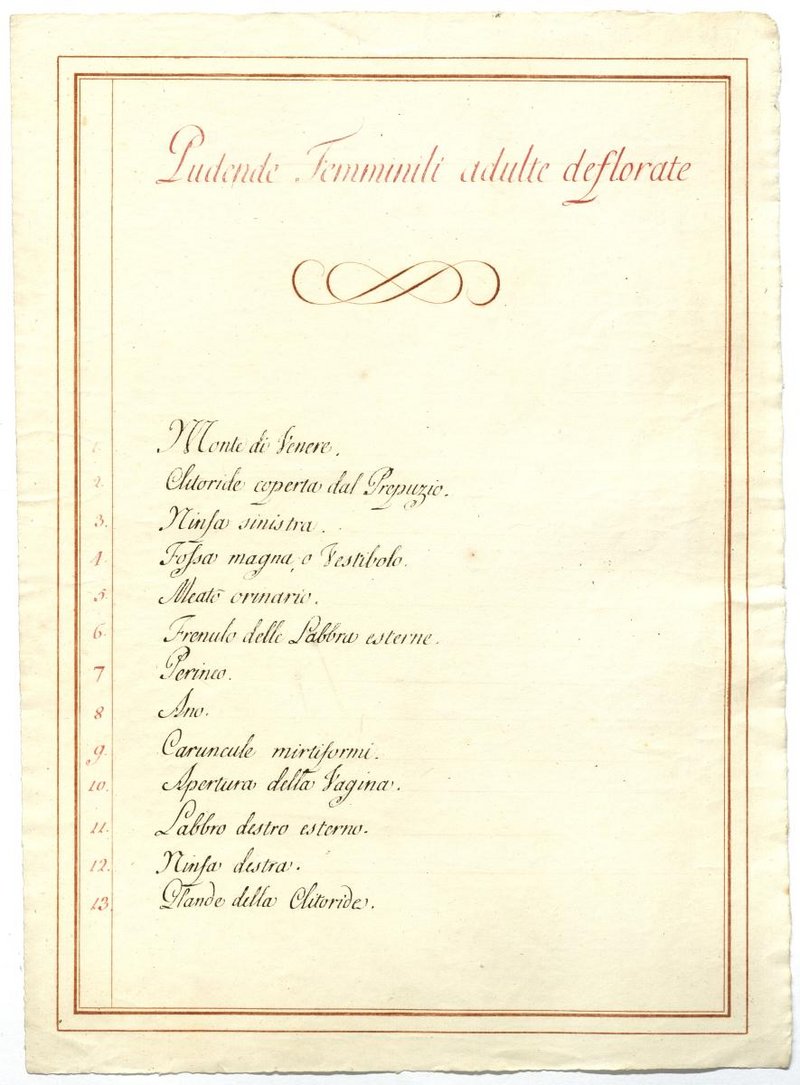 Pudende Femminili adulte deflorate
1. Monte di Venere.
2. Clitoride coperta dal Prepuzio.
3. Ninfa sinistra.
4. Fossa magna, o Vestibolo.
5. Meato orinario.
6. Frenulo delle Labbra esterne.
7 Perineo.
8 Ano.
9. Caruncule mirtiformi.
10. Apertura della Vagina.
11. Labbro destro esterno.
12. Ninfa destra.
13. Glande della Clitoride.